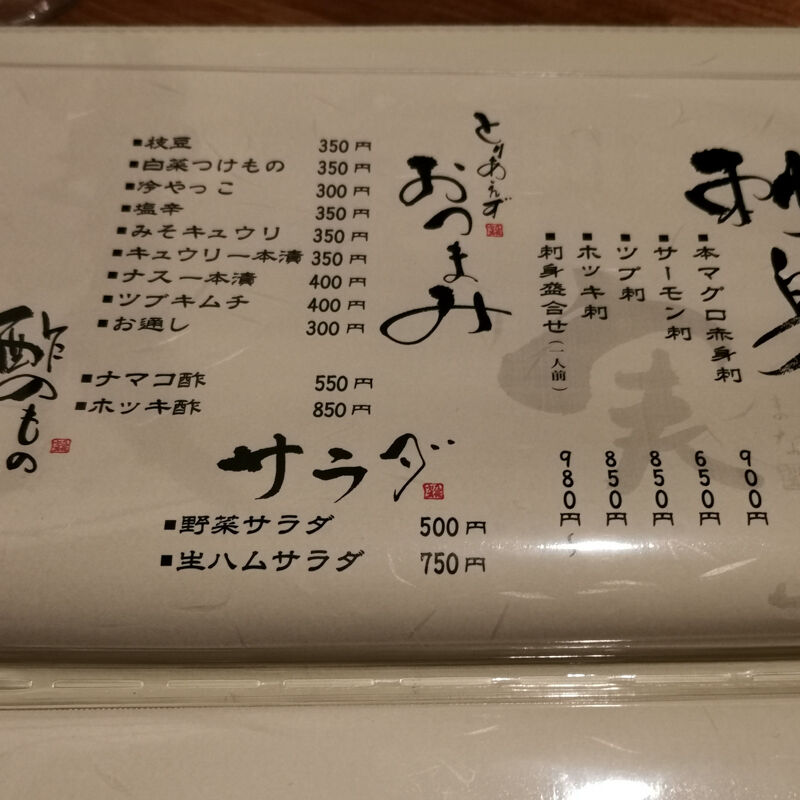 刺身
■本マグロ赤身刺 900円
■サーモン刺 650円
■ツブ刺 850円
■ホッキ刺 850円
■刺身盛合せ(一人前) 980円〜
とりあえず
おつまみ
■枝豆 350円
■白菜つけもの 350円
■冷やっこ 300円
■塩辛 350円
■みそキュウリ 350円
■キュウリ一本漬 350円
■ナス一本漬 400円
■ツブキムチ 400円
■お通し 300円
酢のもの
■ナマコ酢 550円
■ホッキ酢 850円
サラダ
■野菜サラダ 500円
■生ハムサラダ 750円